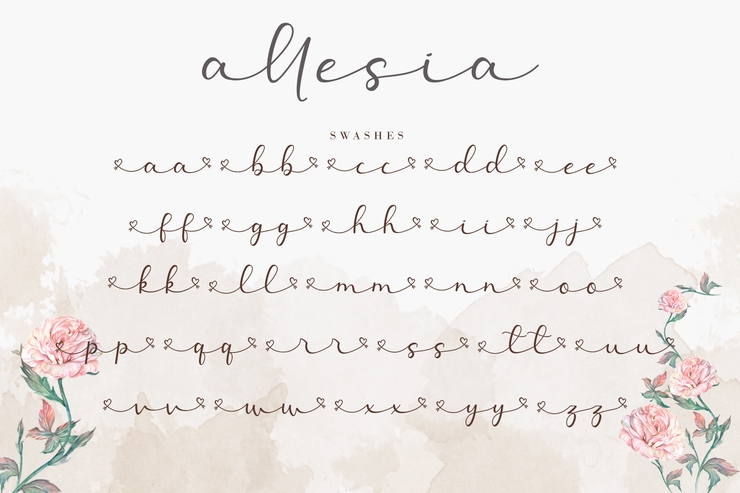 allesia
SWASHES
aa bb cc dd ee
ff gg hh ii jj
kk ll mm nn oo
pp qq rr ss tt uu
vv ww xx yy zz